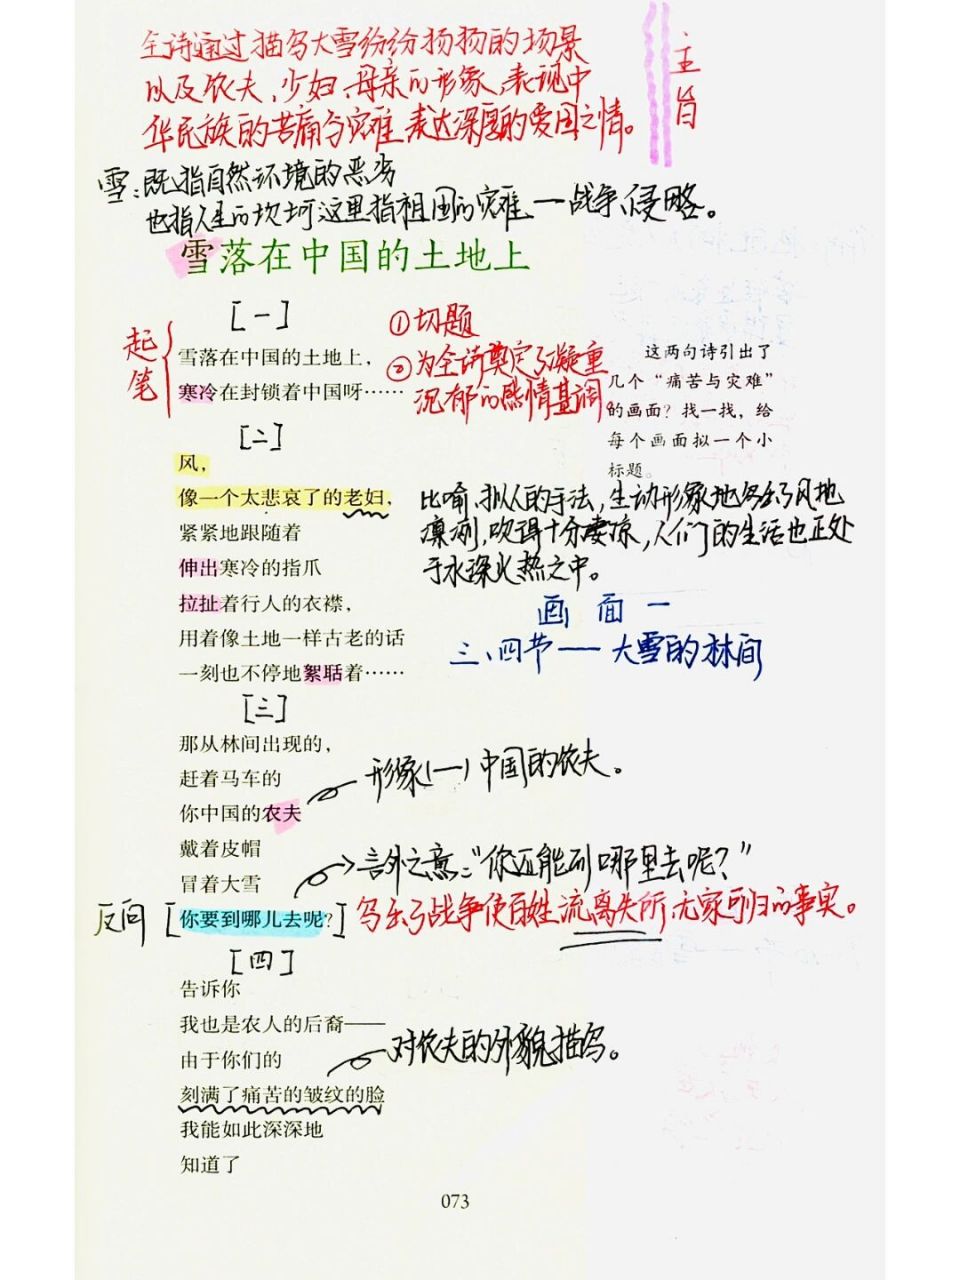 全诗通过描写大雪纷纷扬扬的场景
以及农夫、少妇、母亲的形象,表现中
华民族的苦痛与灾难,表达深厚的爱国之情。
主旨
雪:既指自然环境的恶劣
也指人生的坎坷这里指祖国的灾难—战争、侵略。
雪落在中国的土地上
[一]
起笔
雪落在中国的土地上,
寒冷在封锁着中国呀……
①切题
②为全诗奠定了凝重
沉郁的感情基调
这两句诗引出了
几个“痛苦与灾难”
的画面?找一找,给
每个画面拟一个小
标题。
[二]
风,
像一个太悲哀了的老妇,
紧紧地跟随着
伸出寒冷的指爪
拉扯着行人的衣襟,
用着像土地一样古老的话
一刻也不停地絮聒着……
比喻、拟人的手法,生动形象地写出了风地
凛冽,吹得十分凄凉,人们的生活也正处
于水深火热之中。
画面一
三、四节——大雪的林间
[三]
那从林间出现的,
赶着马车的
你中国的农夫
戴着皮帽
冒着大雪
你要到哪儿去呢?
形象(一)中国的农夫。
言外之意:“你还能到哪里去呢?”
反问
写出了战争使百姓流离失所,无家可归的事实。
[四]
告诉你
我也是农人的后裔——
由于你们的
刻满了痛苦的皱纹的脸
我能如此深深地
知道了
对农夫的外貌描写。
073